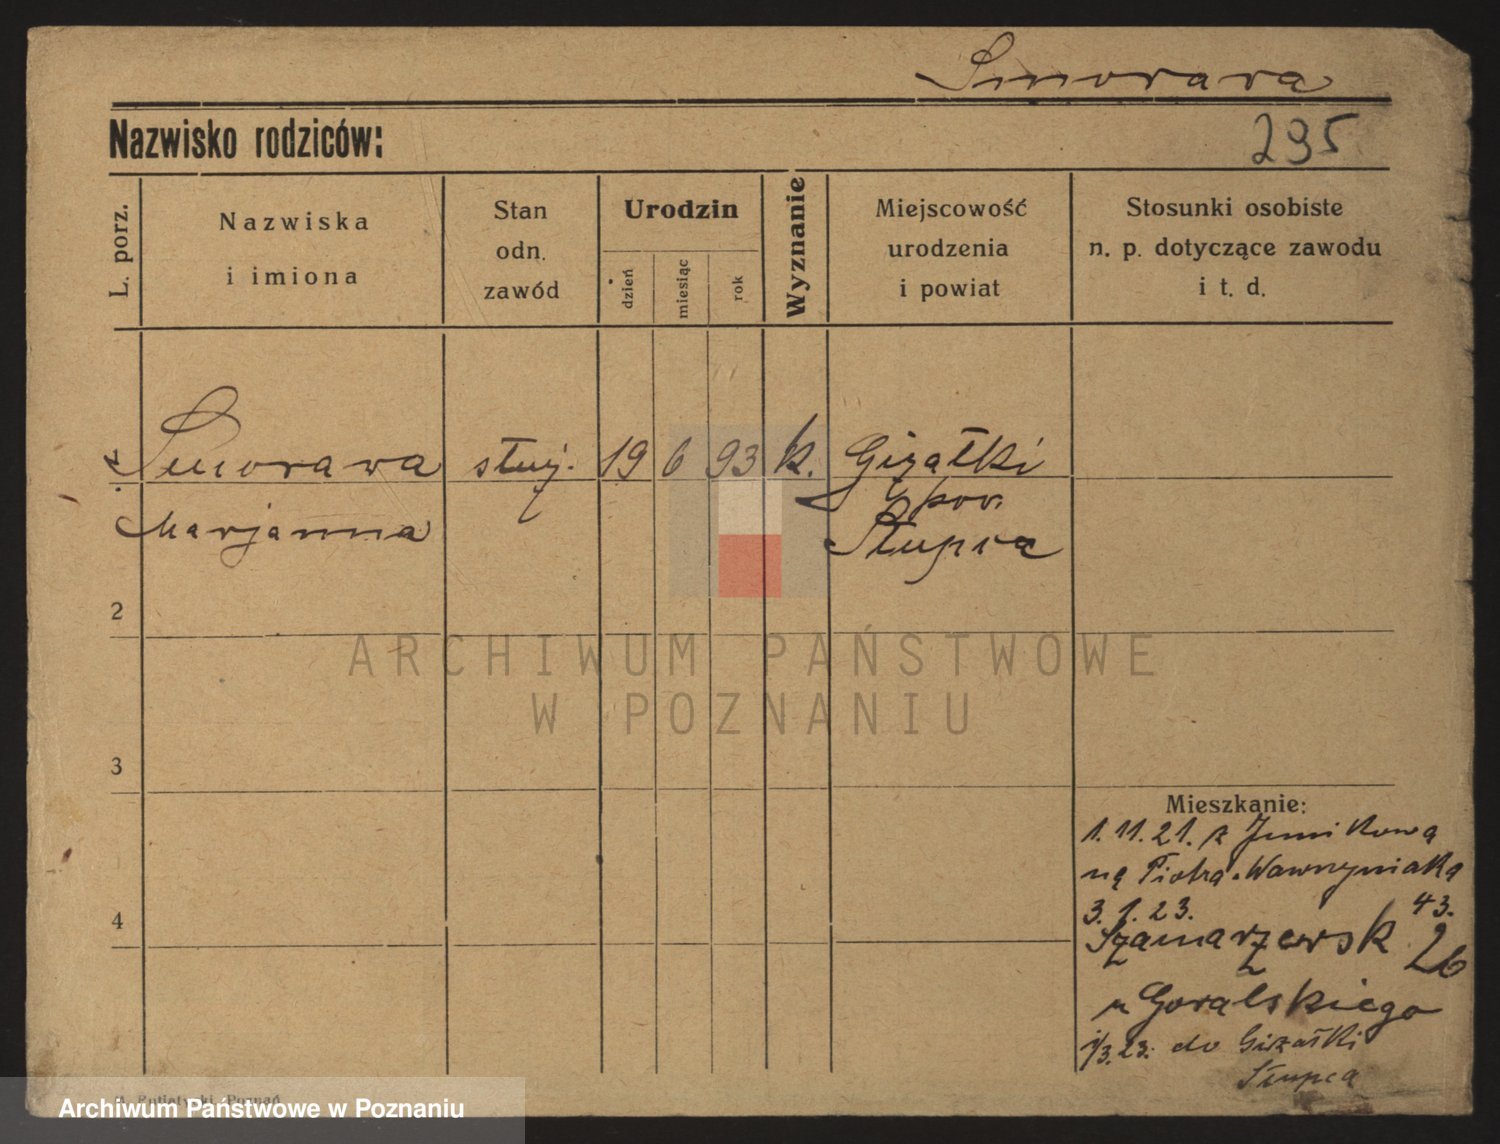 Smorawa
Nazwisko rodziców:
295
L. porz.
Nazwiska
i imiona
Stan
odn.
zawód
Urodzin
dzień
miesiąc
rok
Wyznanie
Miejscowość
urodzenia
i powiat
Stosunki osobiste
n. p. dotyczące zawodu
i t. d.
1
Smorawa
służ.
19
6
93
k.
Giząłki
Marjanna
pow.
Słupca
2
ARCHIWUM PAŃSTWOWE
W POZNANIU
3
Mieszkanie:
1. 11. 21. z Junikowa
na Piotra Wawrzyniaka
3. 1. 23. 43.
4
Szamarzewsk 26
u Goralskiego
1/3. 23. do Gizałki
Słupca
Poznań
Archiwum Państwowe w Poznaniu